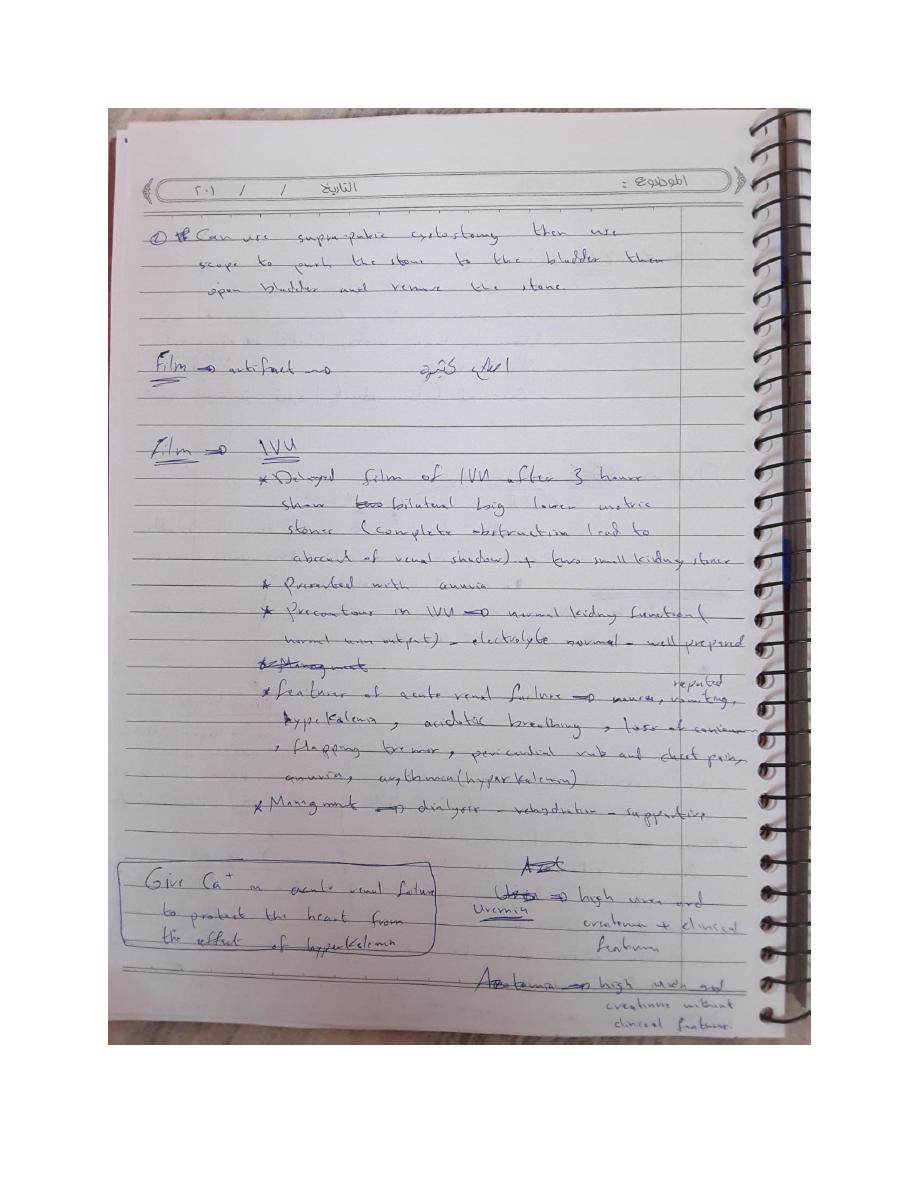 الموضوع : التاريخ / / ٢٠١
② Can use supra-pubic cystostomy then use
scope to push the stone to the bladder then
open bladder and remove the stone.
Film ⇒ artifact →
Film ⇒ IVU
* Delayed film of IVU after 3 hours
show two bilateral big lower uretric
stones (complete obstruction lead to
abscent of renal shadow) + two small kidny stones
* Presented with anuria
* Precontour in IVU ⇒ normal kidny function (
normal urin output) - electrolyte normal - well prepared
* Managment
* features of acute renal failure ⇒ nausea, repeated vomiting,
hyperkalemia, acidotic breathing, loss of
, flapping tremor, pericardial rub and chest pain,
anuria, arythmia (hyperkalemia)
* Managment ⇒ dialysis - rehydration - supportive
Give Ca+ in acute renal failure
to protect the heart from
the effect of hyperkalemia
Azt
Uremia ⇒ high urea and
creatinine + clinical
features
Azotemia ⇒ high urea and
creatinine without
clinical features.